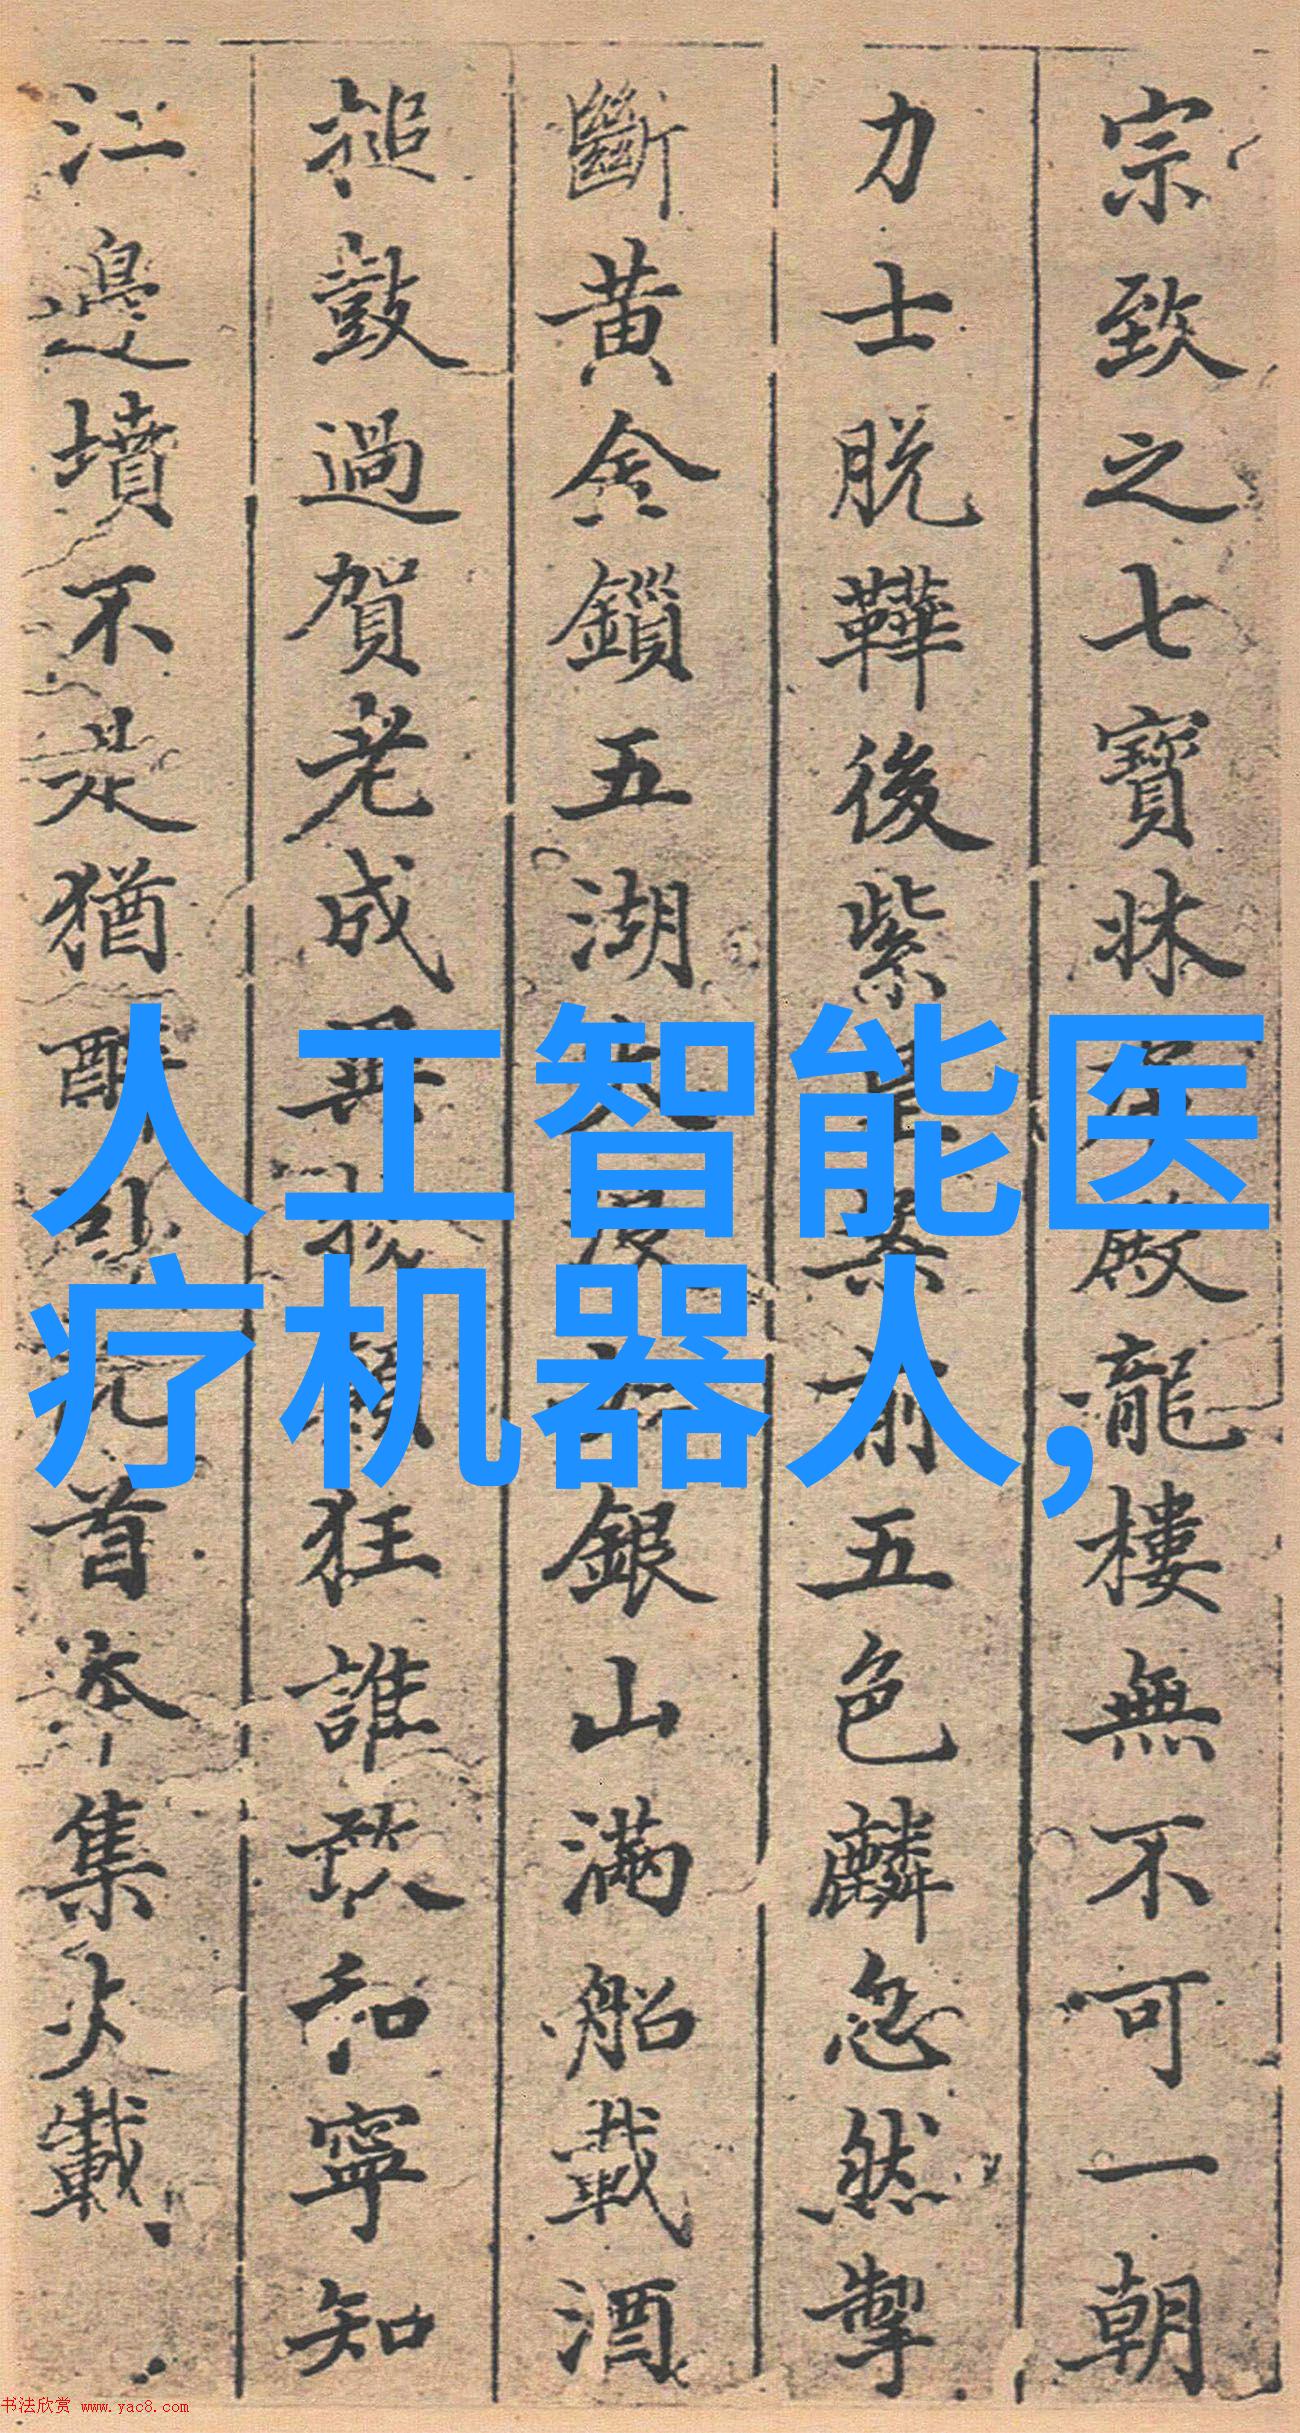 宗致之七寶牀龍樓無不可一朝
力士脱鞾後紫前五色麟忽然掣
斷黄金鎖五湖銀山滿船載酒
搥鼓過賀老成異狂誰敢和寧知
江邊墳不是猶醉首本集載
人工智能医
疗机器人,
书法欣赏 www.yac8.com